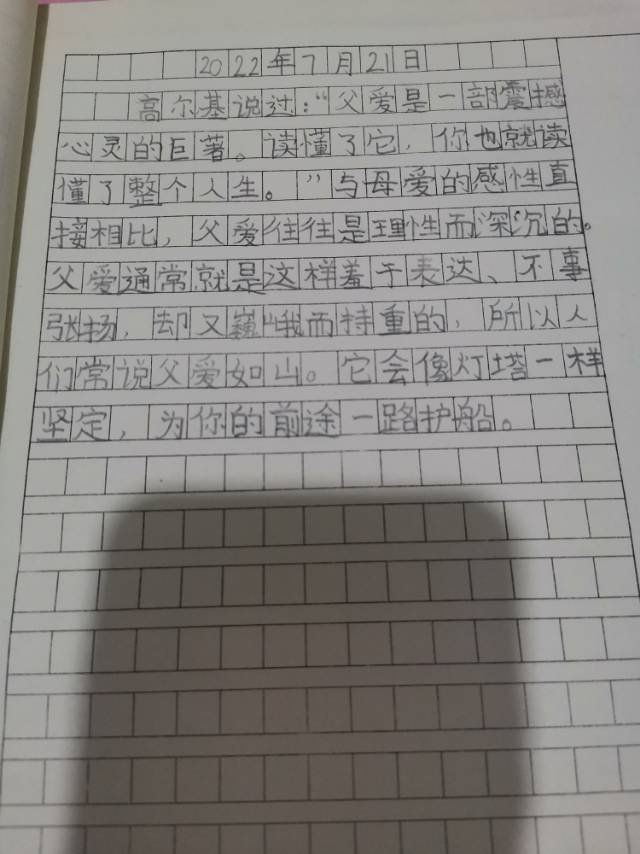 2022年7月21日
高尔基说过:“父爱是一部震撼
心灵的巨著。读懂了它，你也就读
懂了整个人生。”与母爱的感性直
接相比，父爱往往是理性而深沉的。
父爱通常就是这样羞于表达、不事
张扬，却又巍峨而持重的，所以人
们常说父爱如山。它会像灯塔一样
坚定，为你的前途一路护船。